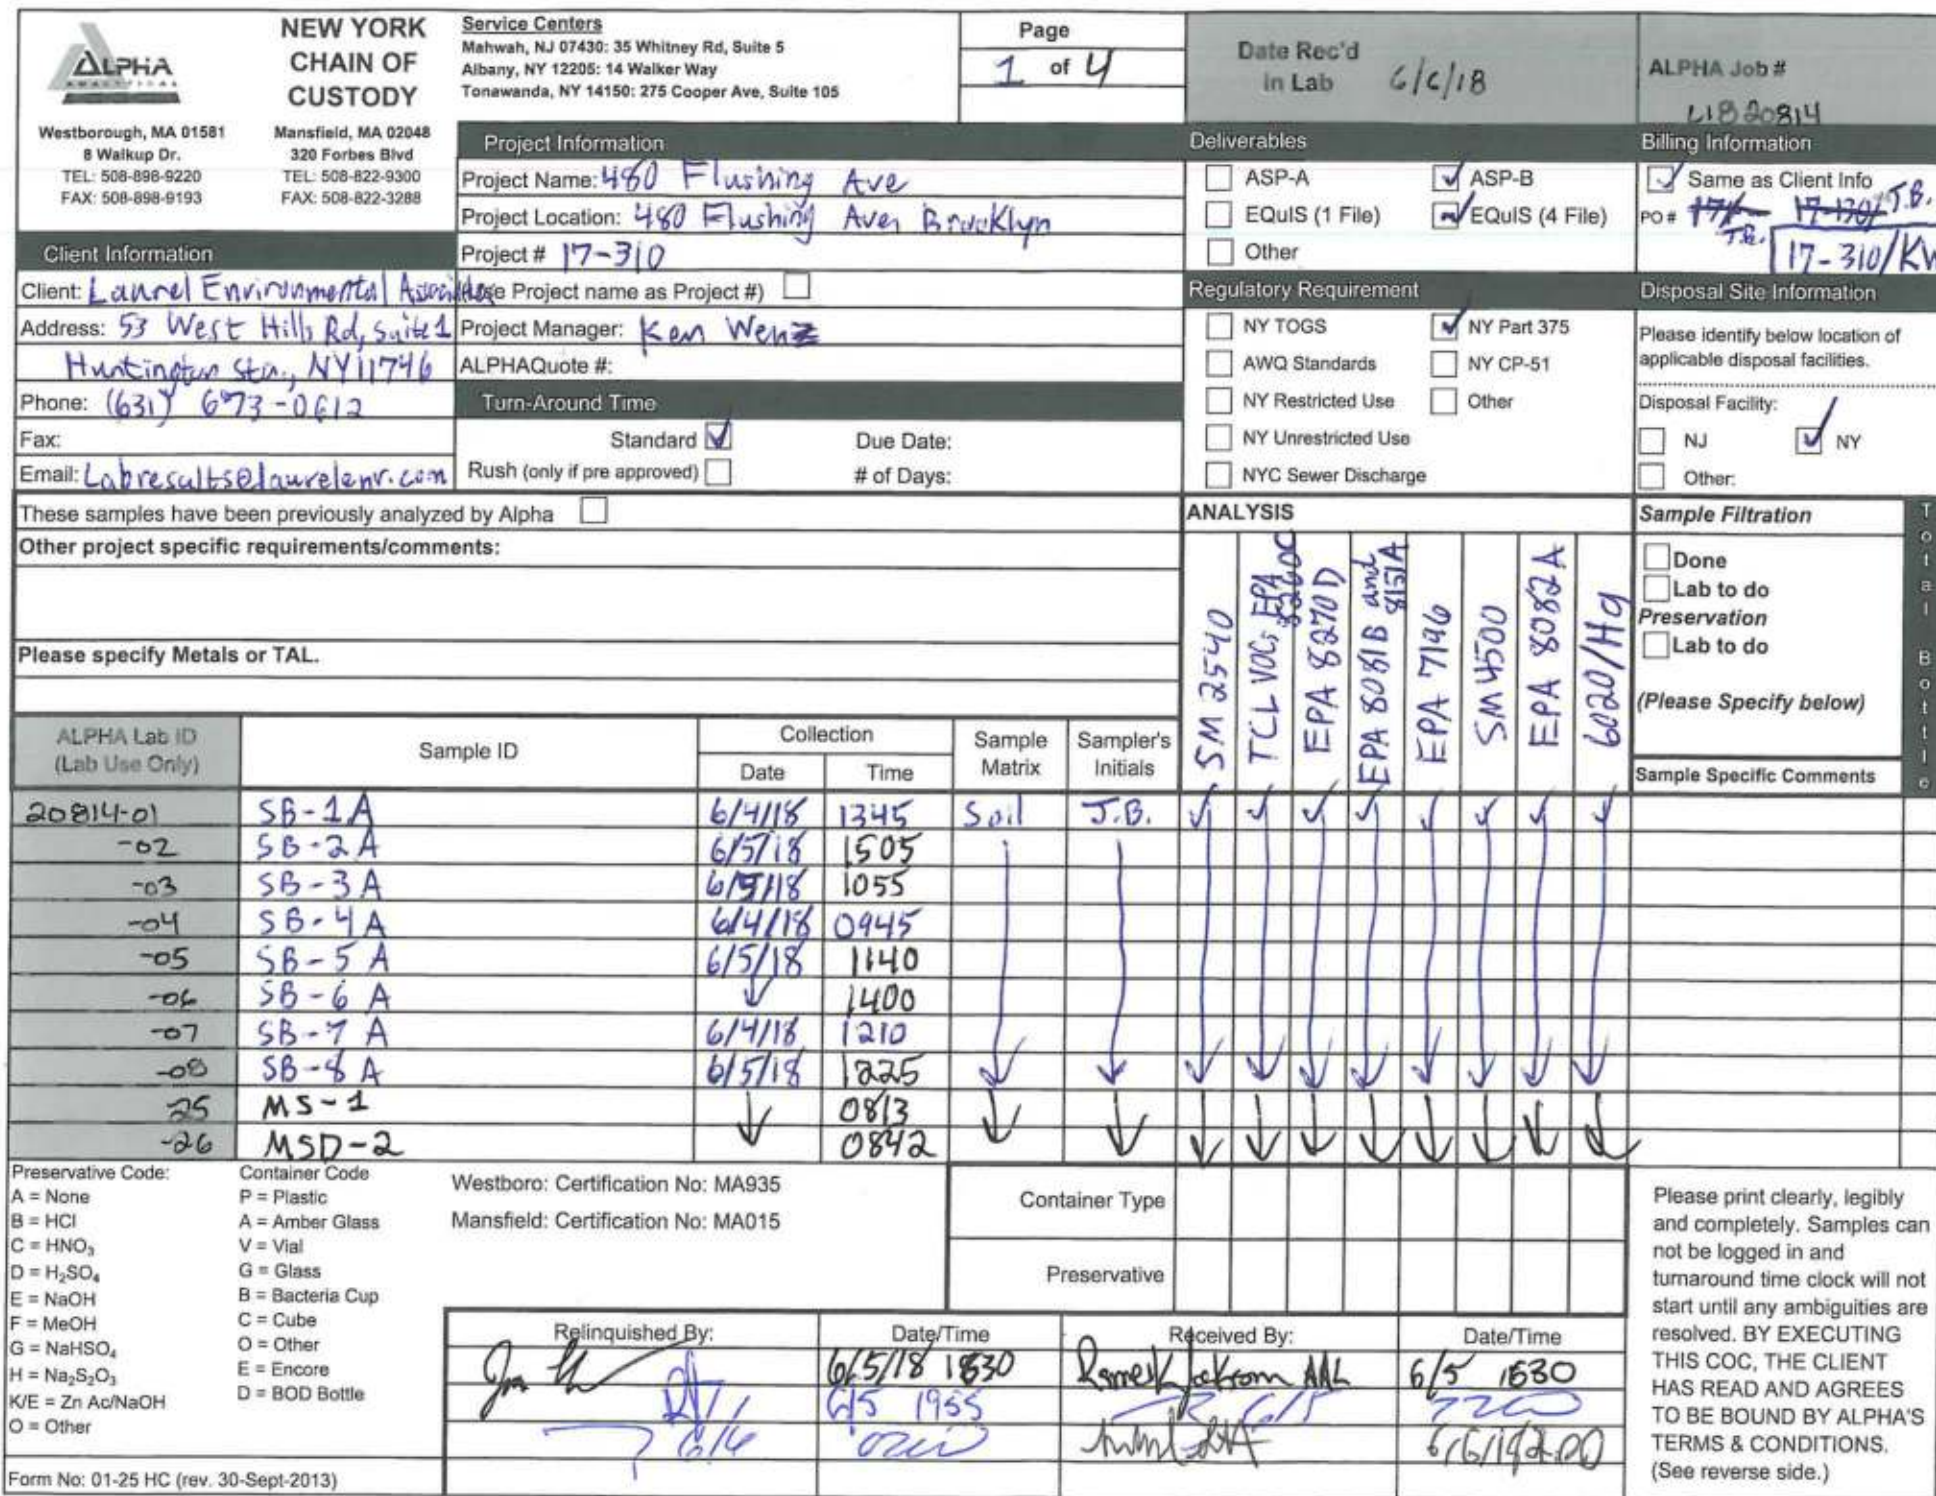 ALPHA
ANALYTICAL
Westborough, MA 01581
8 Walkup Dr.
TEL: 508-898-9220
FAX: 508-898-9193
NEW YORK
CHAIN OF
CUSTODY
Mansfield, MA 02048
320 Forbes Blvd
TEL: 508-822-9300
FAX: 508-822-3288
Service Centers
Mahwah, NJ 07430: 35 Whitney Rd, Suite 5
Albany, NY 12205: 14 Walker Way
Tonawanda, NY 14150: 275 Cooper Ave, Suite 105
Page
1 of 4
Date Rec'd
in Lab 6/6/18
ALPHA Job #
L1820814
Client Information
Client: Laurel Environmental Associates
Address: 53 West Hills Rd, Suite 1
Huntington Stn., NY 11746
Phone: (631) 673-0612
Fax:
Email: Labresults@laurelenv.com
Project Information
Project Name: 480 Flushing Ave
Project Location: 480 Flushing Ave, Brooklyn
Project # 17-310
(Use Project name as Project #)
Project Manager: Ken Wenz
ALPHAQuote #:
Turn-Around Time
Standard ✓ Due Date:
Rush (only if pre approved) # of Days:
Deliverables
ASP-A ✓ ASP-B
EQuIS (1 File) ✓ EQuIS (4 File)
Other
Regulatory Requirement
NY TOGS ✓ NY Part 375
AWQ Standards NY CP-51
NY Restricted Use Other
NY Unrestricted Use
NYC Sewer Discharge
Billing Information
✓ Same as Client Info
PO # 17-130/ J.B.
J.B.
17-310/KW
Disposal Site Information
Please identify below location of
applicable disposal facilities.
Disposal Facility:
NJ ✓ NY
Other:
These samples have been previously analyzed by Alpha
Other project specific requirements/comments:
Please specify Metals or TAL.
ANALYSIS
SM 2540
TCL VOCs EPA 8260C
EPA 8270D
EPA 8081B and 8151A
EPA 7196
SM 4500
EPA 8082A
6020/Hg
Sample Filtration
Done
Lab to do
Preservation
Lab to do
(Please Specify below)
Total Bottle
ALPHA Lab ID
(Lab Use Only)
Sample ID
Collection
Date Time
Sample
Matrix
Sampler's
Initials
Sample Specific Comments
20814-01 SB-1A 6/4/18 1345 Soil J.B. ✓ ✓ ✓ ✓ ✓ ✓ ✓ ✓
-02 SB-2A 6/5/18 1505
-03 SB-3A 6/5/18 1055
-04 SB-4A 6/4/18 0945
-05 SB-5A 6/5/18 1140
-06 SB-6A 1400
-07 SB-7A 6/4/18 1210
-08 SB-8A 6/5/18 1225
-25 MS-1 0813
-26 MSD-2 0842
Preservative Code:
A = None
B = HCl
C = HNO₃
D = H₂SO₄
E = NaOH
F = MeOH
G = NaHSO₄
H = Na₂S₂O₃
K/E = Zn Ac/NaOH
O = Other
Container Code
P = Plastic
A = Amber Glass
V = Vial
G = Glass
B = Bacteria Cup
C = Cube
O = Other
E = Encore
D = BOD Bottle
Westboro: Certification No: MA935
Mansfield: Certification No: MA015
Container Type
Preservative
Relinquished By: Date/Time Received By: Date/Time
6/5/18 1830 AAL 6/5 1830
6/5 1955 6/5
6/6
Please print clearly, legibly
and completely. Samples can
not be logged in and
turnaround time clock will not
start until any ambiguities are
resolved. BY EXECUTING
THIS COC, THE CLIENT
HAS READ AND AGREES
TO BE BOUND BY ALPHA'S
TERMS & CONDITIONS.
(See reverse side.)
Form No: 01-25 HC (rev. 30-Sept-2013)